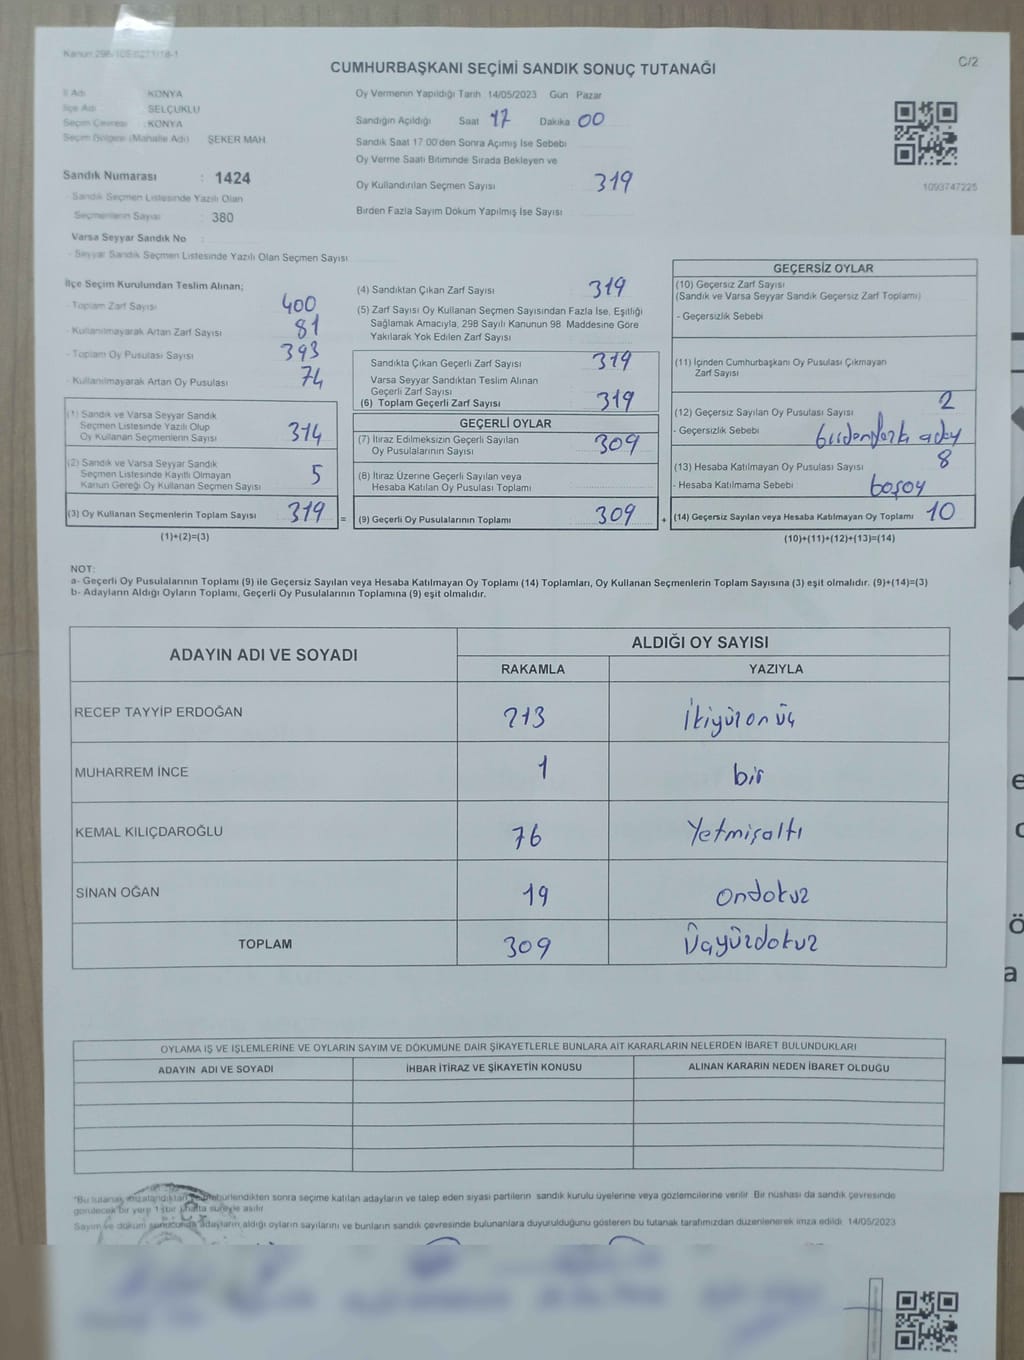 Kanun 298/105-0271/18-1
C/2
CUMHURBAŞKANI SEÇİMİ SANDIK SONUÇ TUTANAĞI
İl Adı KONYA
İlçe Adı SELÇUKLU
Seçim Çevresi : KONYA
Seçim Bölgesi (Mahalle Adı) ŞEKER MAH.
Sandık Numarası : 1424
- Sandık Seçmen Listesinde Yazılı Olan
Seçmenlerin Sayısı : 380
Varsa Seyyar Sandık No :
- Seyyar Sandık Seçmen Listesinde Yazılı Olan Seçmen Sayısı
Oy Vermenin Yapıldığı Tarih 14/05/2023 Gün Pazar
Sandığın Açıldığı Saat 17 Dakika 00
Sandık Saat 17:00'den Sonra Açımış İse Sebebi
Oy Verme Saati Bitiminde Sırada Bekleyen ve
Oy Kullandırılan Seçmen Sayısı 319
Birden Fazla Sayım Döküm Yapılmış İse Sayısı
1093747225
İlçe Seçim Kurulundan Teslim Alınan;
- Toplam Zarf Sayısı 400
- Kullanılmayarak Artan Zarf Sayısı 81
- Toplam Oy Pusulası Sayısı 393
- Kullanılmayarak Artan Oy Pusulası 74
(1) Sandık ve Varsa Seyyar Sandık
Seçmen Listesinde Yazılı Olup
Oy Kullanan Seçmenlerin Sayısı 314
(2) Sandık ve Varsa Seyyar Sandık
Seçmen Listesinde Kayıtlı Olmayan
Kanun Gereği Oy Kullanan Seçmen Sayısı 5
(3) Oy Kullanan Seçmenlerin Toplam Sayısı 319 =
(1)+(2)=(3)
(4) Sandıktan Çıkan Zarf Sayısı 319
(5) Zarf Sayısı Oy Kullanan Seçmen Sayısından Fazla İse, Eşitliği
Sağlamak Amacıyla, 298 Sayılı Kanunun 98. Maddesine Göre
Yakılarak Yok Edilen Zarf Sayısı
Sandıkta Çıkan Geçerli Zarf Sayısı 319
Varsa Seyyar Sandıktan Teslim Alınan
Geçerli Zarf Sayısı
(6) Toplam Geçerli Zarf Sayısı 319
GEÇERLİ OYLAR
(7) İtiraz Edilmeksizin Geçerli Sayılan
Oy Pusulalarının Sayısı 309
(8) İtiraz Üzerine Geçerli Sayılan veya
Hesaba Katılan Oy Pusulası Toplamı
(9) Geçerli Oy Pusulalarının Toplamı 309 +
GEÇERSİZ OYLAR
(10) Geçersiz Zarf Sayısı
(Sandık ve Varsa Seyyar Sandık Geçersiz Zarf Toplamı)
- Geçersizlik Sebebi
(11) İçinden Cumhurbaşkanı Oy Pusulası Çıkmayan
Zarf Sayısı
(12) Geçersiz Sayılan Oy Pusulası Sayısı 2
- Geçersizlik Sebebi birdenfazla aday
(13) Hesaba Katılmayan Oy Pusulası Sayısı 8
- Hesaba Katılmama Sebebi boşoy
(14) Geçersiz Sayılan veya Hesaba Katılmayan Oy Toplamı 10
(10)+(11)+(12)+(13)=(14)
NOT:
a- Geçerli Oy Pusulalarının Toplamı (9) ile Geçersiz Sayılan veya Hesaba Katılmayan Oy Toplamı (14) Toplamları, Oy Kullanan Seçmenlerin Toplam Sayısına (3) eşit olmalıdır. (9)+(14)=(3)
b- Adayların Aldığı Oyların Toplamı, Geçerli Oy Pusulalarının Toplamına (9) eşit olmalıdır.
ADAYIN ADI VE SOYADI
ALDIĞI OY SAYISI
RAKAMLA YAZIYLA
RECEP TAYYİP ERDOĞAN 213 İkiyüzonüç
MUHARREM İNCE 1 bir
KEMAL KILIÇDAROĞLU 76 Yetmişaltı
SİNAN OĞAN 19 ondokuz
TOPLAM 309 Üçyüzdokuz
OYLAMA İŞ VE İŞLEMLERİNE VE OYLARIN SAYIM VE DÖKÜMÜNE DAİR ŞİKAYETLERLE BUNLARA AİT KARARLARIN NELERDEN İBARET BULUNDUKLARI
ADAYIN ADI VE SOYADI İHBAR İTİRAZ VE ŞİKAYETİN KONUSU ALINAN KARARIN NEDEN İBARET OLDUĞU
"Bu tutanak imzalandıktan mühürlendikten sonra seçime katılan adayların ve talep eden siyasi partilerin sandık kurulu üyelerine veya gözlemcilerine verilir. Bir nüshası da sandık çevresinde
görülecek bir yere 1 (bir) hafta süreyle asılır.
Sayım ve döküm sonucunda adayların aldığı oyların sayılarını ve bunların sandık çevresinde bulunanlara duyurulduğunu gösteren bu tutanak tarafımızdan düzenlenerek imza edildi. 14/05/2023